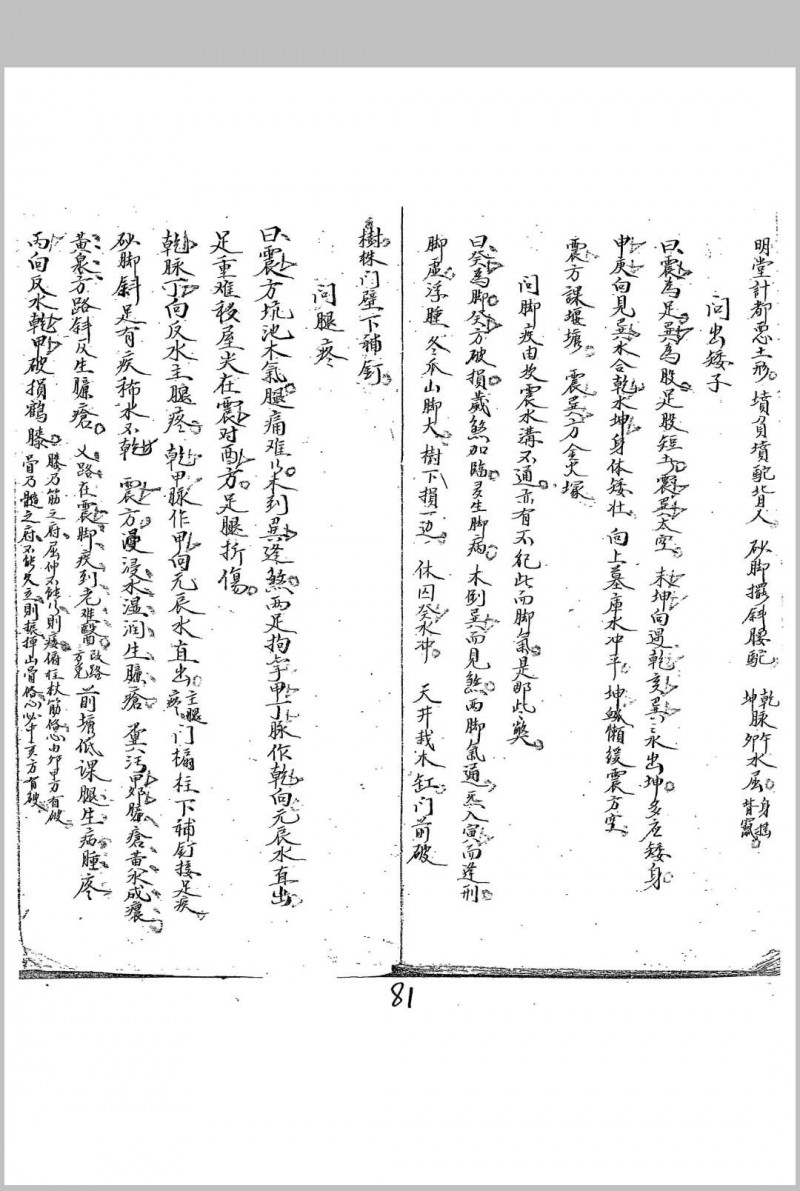 明堂計都惡土形 墳負墳駝背人 砂脚擺斜腰駝 乾脉午水屈身 坤卯背
問出矮子
曰震為足巽為股足股短土震巽太空 未坤向過乾亥巽三水出坤多应矮身
申庚向見巽水合乾水坤身体矮壮 向上墓庫水冲平 坤缺懶緩震方空
震方課堰塘 震巽方金火塚
問脚疫由坎震水溝不通亦有不犯此而脚氣是那些
曰癸為脚癸方破損歲煞加臨多生脚病 木倒巽而見煞两脚氣通 炁入寅而逢刑
脚虚浮腫 冬瓜山脚大 樹下損一边 休囚癸水冲 天井栽木缸门前破
樹株门壁下補釘
问腿疼
曰震方坑池木氣腿痛难行 木到巽逢煞两足拘挛甲丁脉作乾向元辰水直出
足重难移屋尖在震对酉方足腿折傷
乾脉丁向反水主腿疼 乾甲脉作甲向元辰水直出主腿疼 门榻柱下補釘接足疾
砂脚斜足有疾稀水不乾 震方漫浸水湿润生臁瘡 糞污甲卯臁瘡黄水成癀
黄泉方路斜反生臁瘡 乂路在震脚疾到老难醫改路方免 前墻低課腿生病腫疼
丙向反水乾甲破損鶴膝 膝乃筋之府屈伸不能行則痿俯柱杖筋俗心由卯甲方有破 骨乃髓之府不能久立則振掉山骨俗心必中亥方有破
81